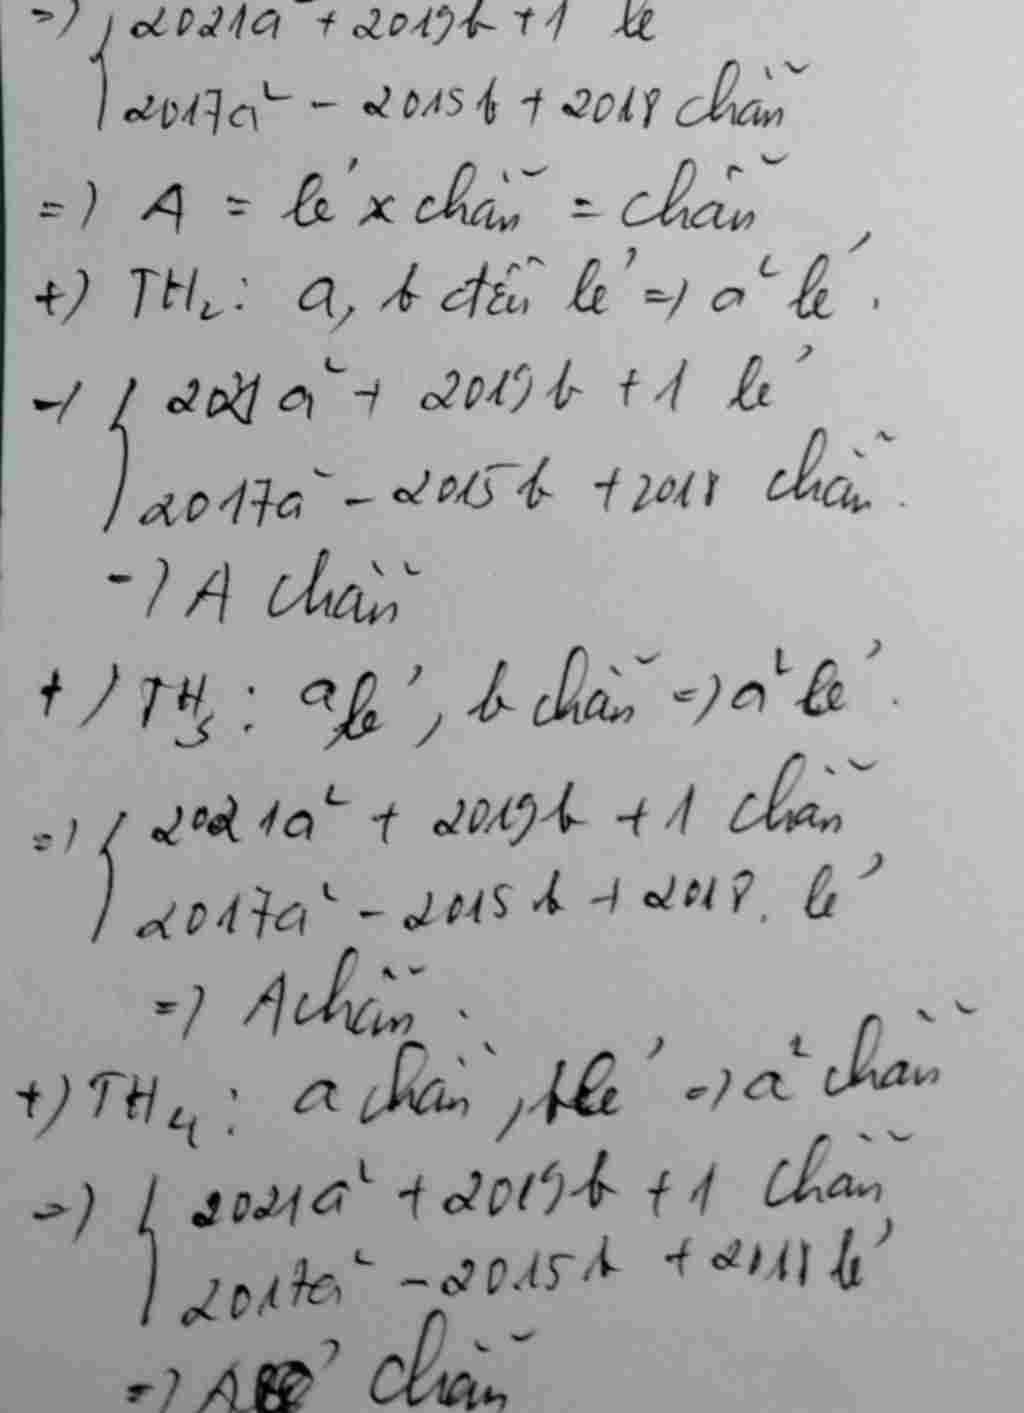 =) { 2021a² + 2019b + 1 lẻ
2017a² - 2015b + 2018 chẵn
=) A = lẻ x chẵn = chẵn
+) TH₂: a, b đều lẻ =) a² lẻ.
=) { 2021a² + 2019b + 1 lẻ
2017a² - 2015b + 2018 chẵn.
=) A chẵn
+) TH₃: a lẻ, b chẵn =) a² lẻ.
=) { 2021a² + 2019b + 1 chẵn
2017a² - 2015b + 2018. lẻ
=) A chẵn.
+) TH₄: a chẵn, b lẻ =) a² chẵn
=) { 2021a² + 2019b + 1 chẵn
2017a² - 2015b + 2018 lẻ
=) A chẵn